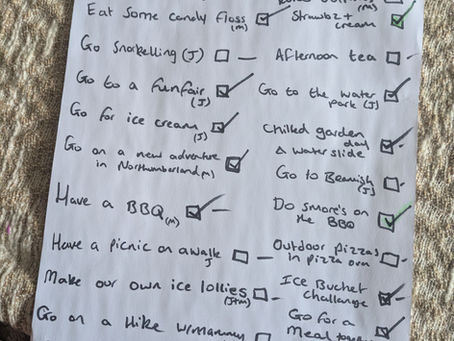 Eat Some candy floss
(M)
Go Snorkelling (J)
Go to a funfair
(J)
Go for ice cream
(J)
Go on a new adventure
in Northumberland (M)
Have a BBQ (M)
Have a picnic on a walk
J
Make our own ice lollies
(J+M)
Go on a Hike w/mammy
(M)
Strawbz +
cream
Afternoon tea
Go to the water
park (J)
Chilled garden
day
& water slide
Go to Beamish
(J)
Do smore's on
the BBQ
Outdoor pizzas
in pizza oven
Ice Bucket
Challange
Go for a
Meal